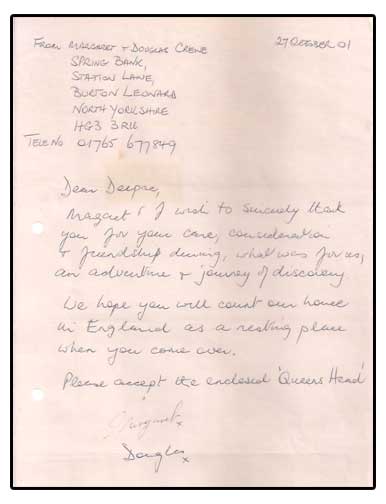 27 OCTOBER 01
FROM MARGARET & DOUGLAS CREWE
SPRING BANK,
STATION LANE,
BURTON LEONARD
NORTH YORKSHIRE
HG3 3RU
TELE NO 01765 677849
Dear Deepac,
Magaret & I wish to sincerely thank
you for your care, consideration
& friendship during, what was for us,
an adventure & journey of discovery
We hope you will count our home
in England as a resting place
when you come over.
Please accept the enclosed 'Queens Head'
Margaret x
Douglas x